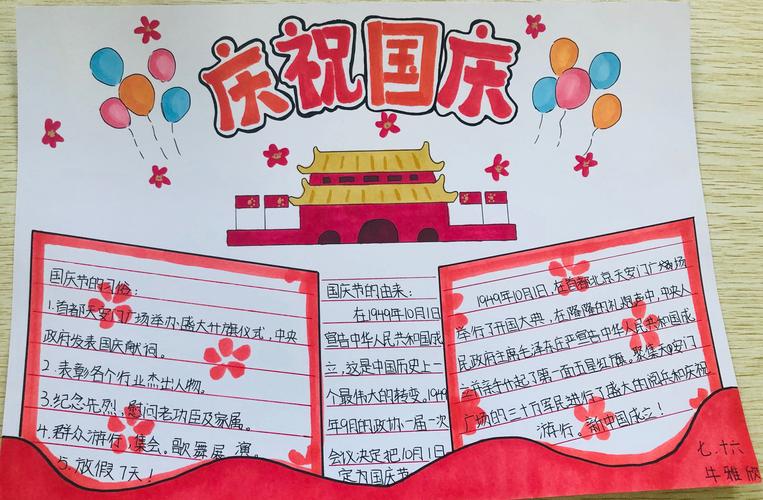 庆祝国庆
国庆节的习俗:
1.首都天安门广场举办盛大升旗仪式,中央
政府发表国庆献词。
2.表彰各个行业杰出人物。
3.纪念先烈,慰问老功臣及家属。
4.群众游行,集会。歌舞展演。
5.放假7天!
国庆节的由来:
在1949年10月1日
宣告中华人民共和国成
立,这是中国历史上一
个最伟大的转变。1949
年9月的政协一届一次
会议决定把10月1日
定为国庆节
1949年10月1日,在首都北京天安门广场
举行了开国大典,在隆隆的礼炮声中,中央人
民政府主席毛泽东庄严宣告中华人民共和国成
立并亲手升起了第一面五星红旗。聚集天安门
广场的三十万军民进行了盛大的阅兵和庆祝
游行。新中国成立!
七.十六
牛雅欣